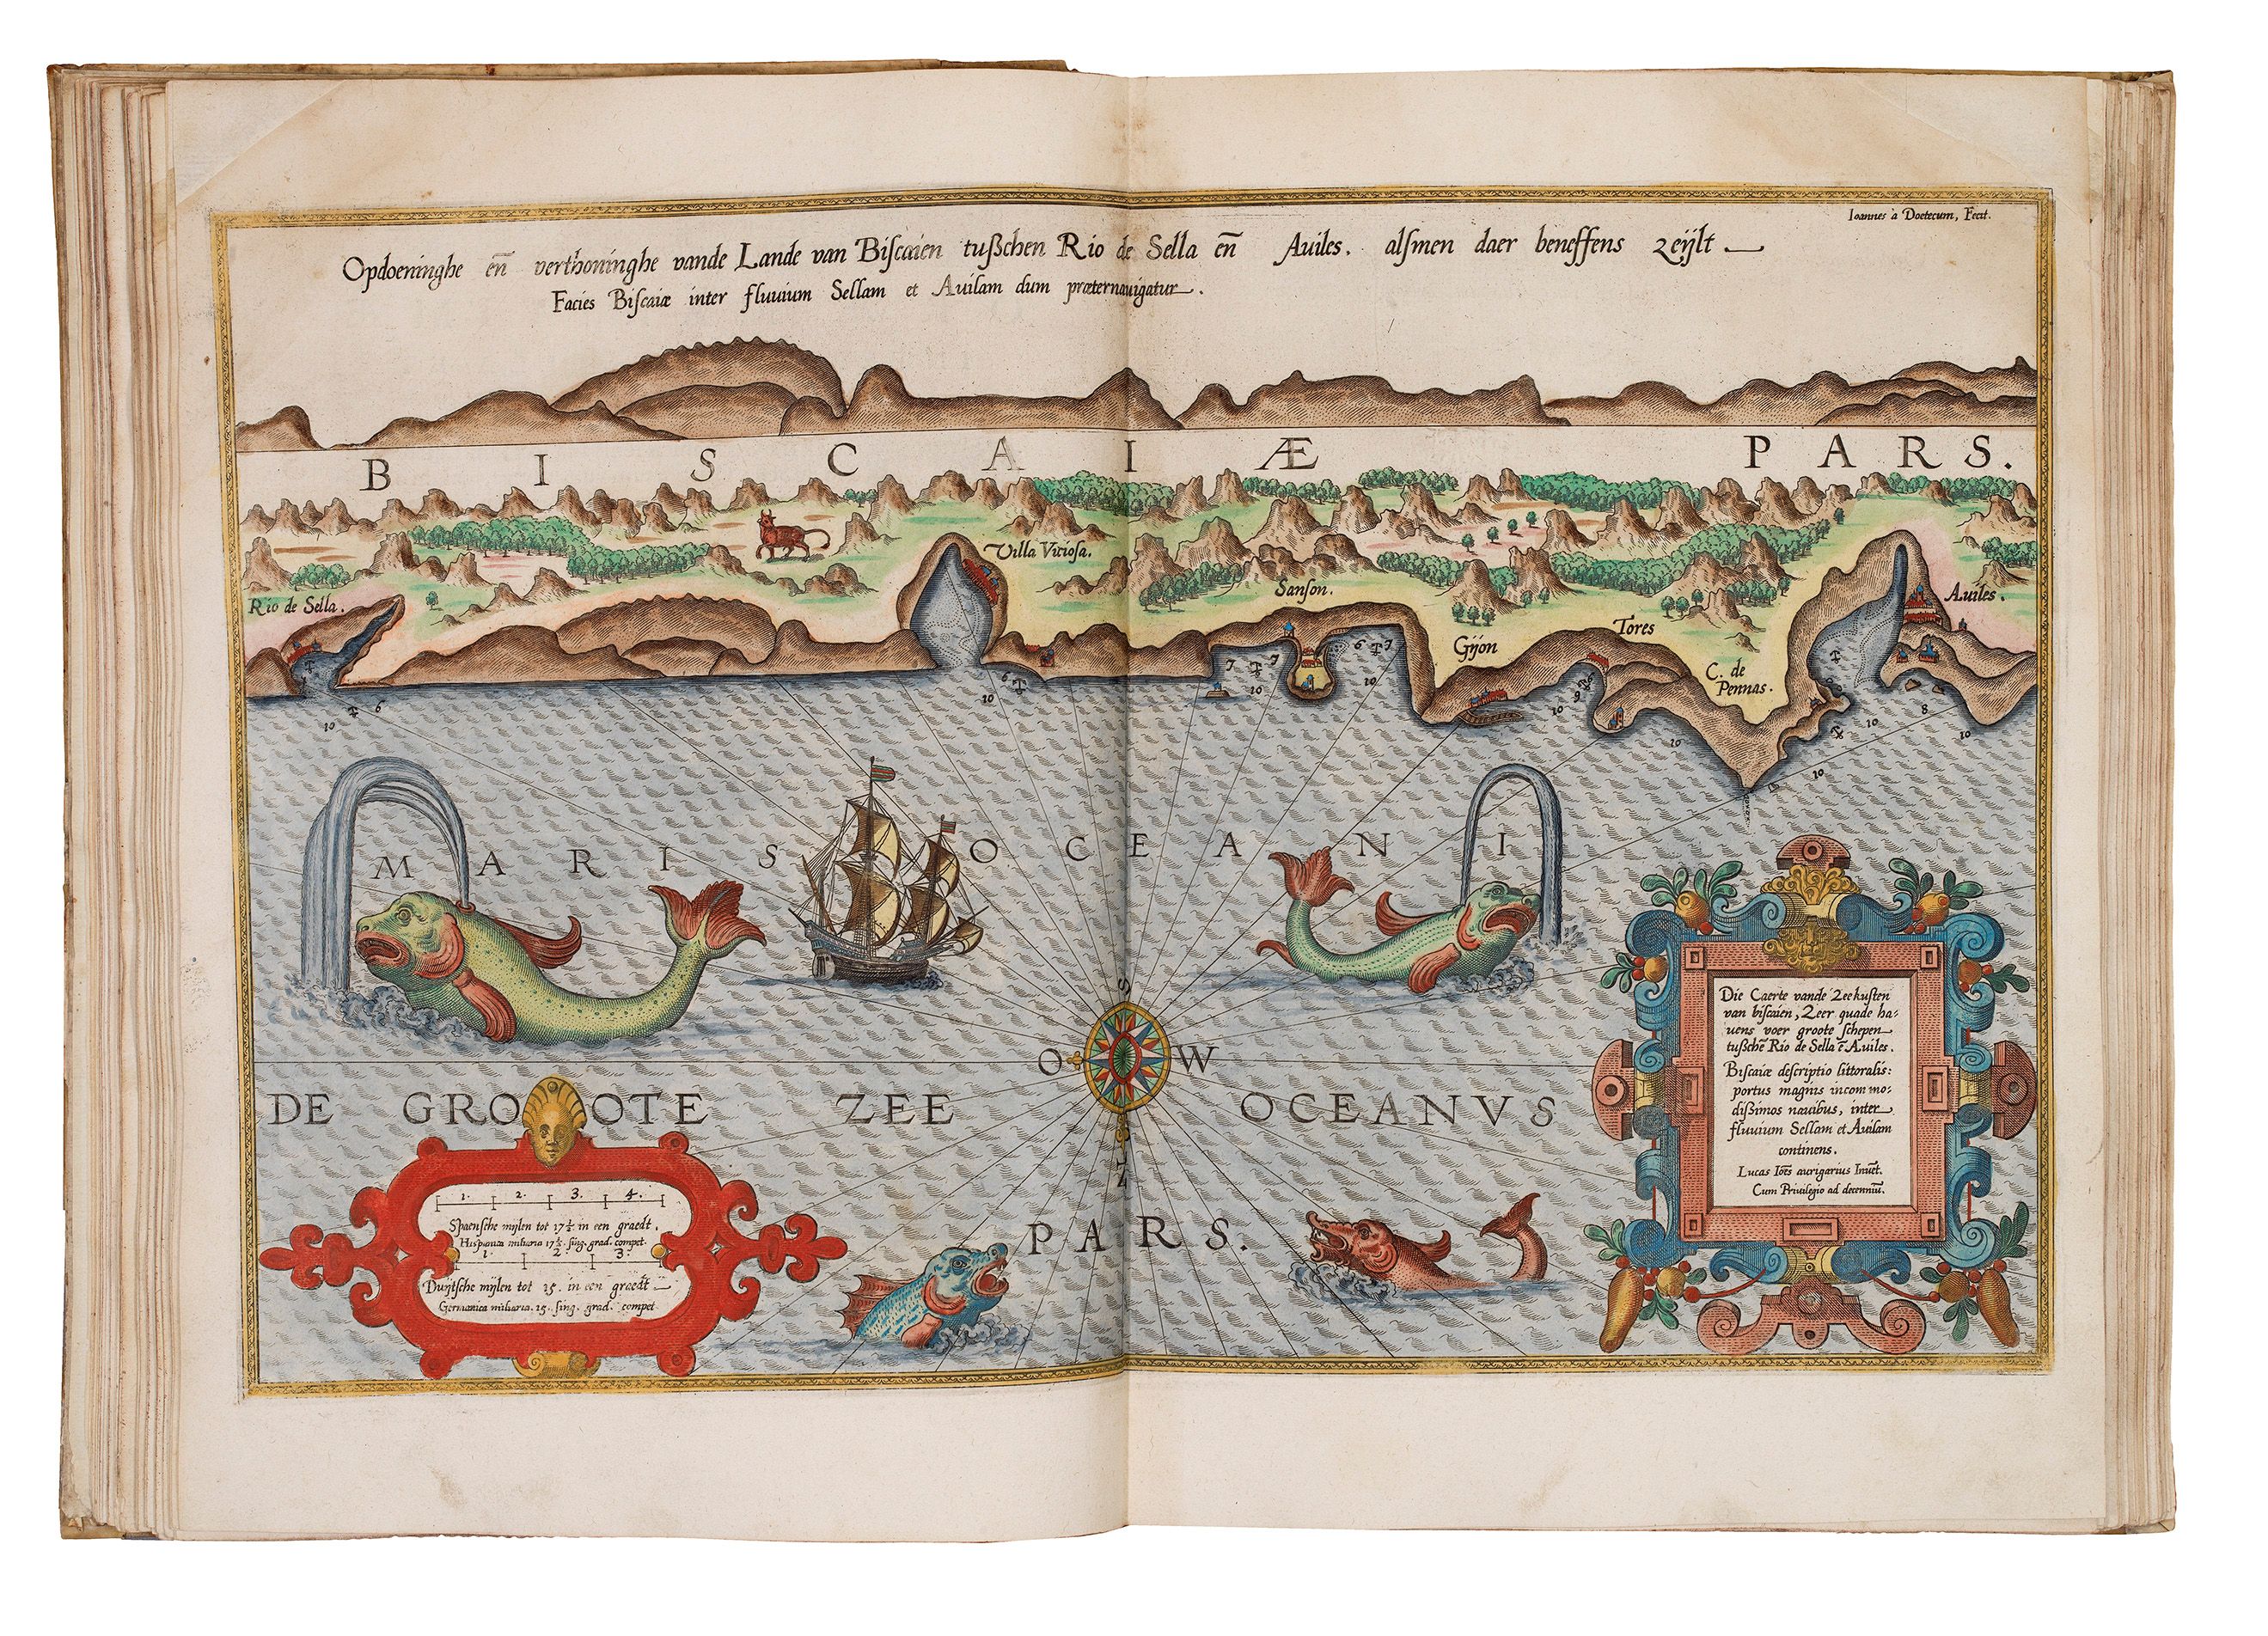 Ioannes à Doetecum, Fecit.
Opdoeninghe eñ verthoninghe vande Lande van Biſcaien tußchen Rio de Sella eñ Auiles. alſmen daer beneffens zeijlt
Facies Biſcaiæ inter fluuium Sellam et Auilam dum præternauigatur.
BISCAIÆ PARS.
Villa Vicioſa.
Rio de Sella.
Sanſon.
Auiles.
Tores
Gijon
C. de
Pennas.
7 7 6 7
10 10
6
10
10 6
10 9 6
10
10 8
10
10
MARIS OCEANI
S
O W
DE GROOTE ZEE OCEANVS
PARS.
1. 2. 3. 4.
Spaenſche mijlen tot 17½ in een graedt.
Hispanica miliaria 17½. ſing. grad. compet.
1. 2 3.
Duijtſche mijlen tot 15. in een graedt
Germanica miliaria. 15. ſing. grad. compet.
Die Caerte vande Zeekuſten
van biſcaien, Zeer quade ha:
uens voer groote ſchepen
tußchē Rio de Sella ē Auiles.
Biſcaiæ deſcriptio littoralis:
portus magnis incommo:
dißimos nauibus, inter
fluuium Sellam et Auilam
continens.
Lucas Ioēs aurigarius Inuēt.
Cum Priuilegio ad decenniū.